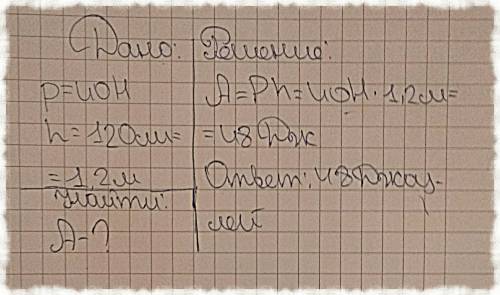 Дано:
p=40Н
h=120см=
=1,2м
Найти:
А-?
Решение:
A=Ph=40Н·1,2м=
=48Дж
Ответ: 48Джоу-
лей